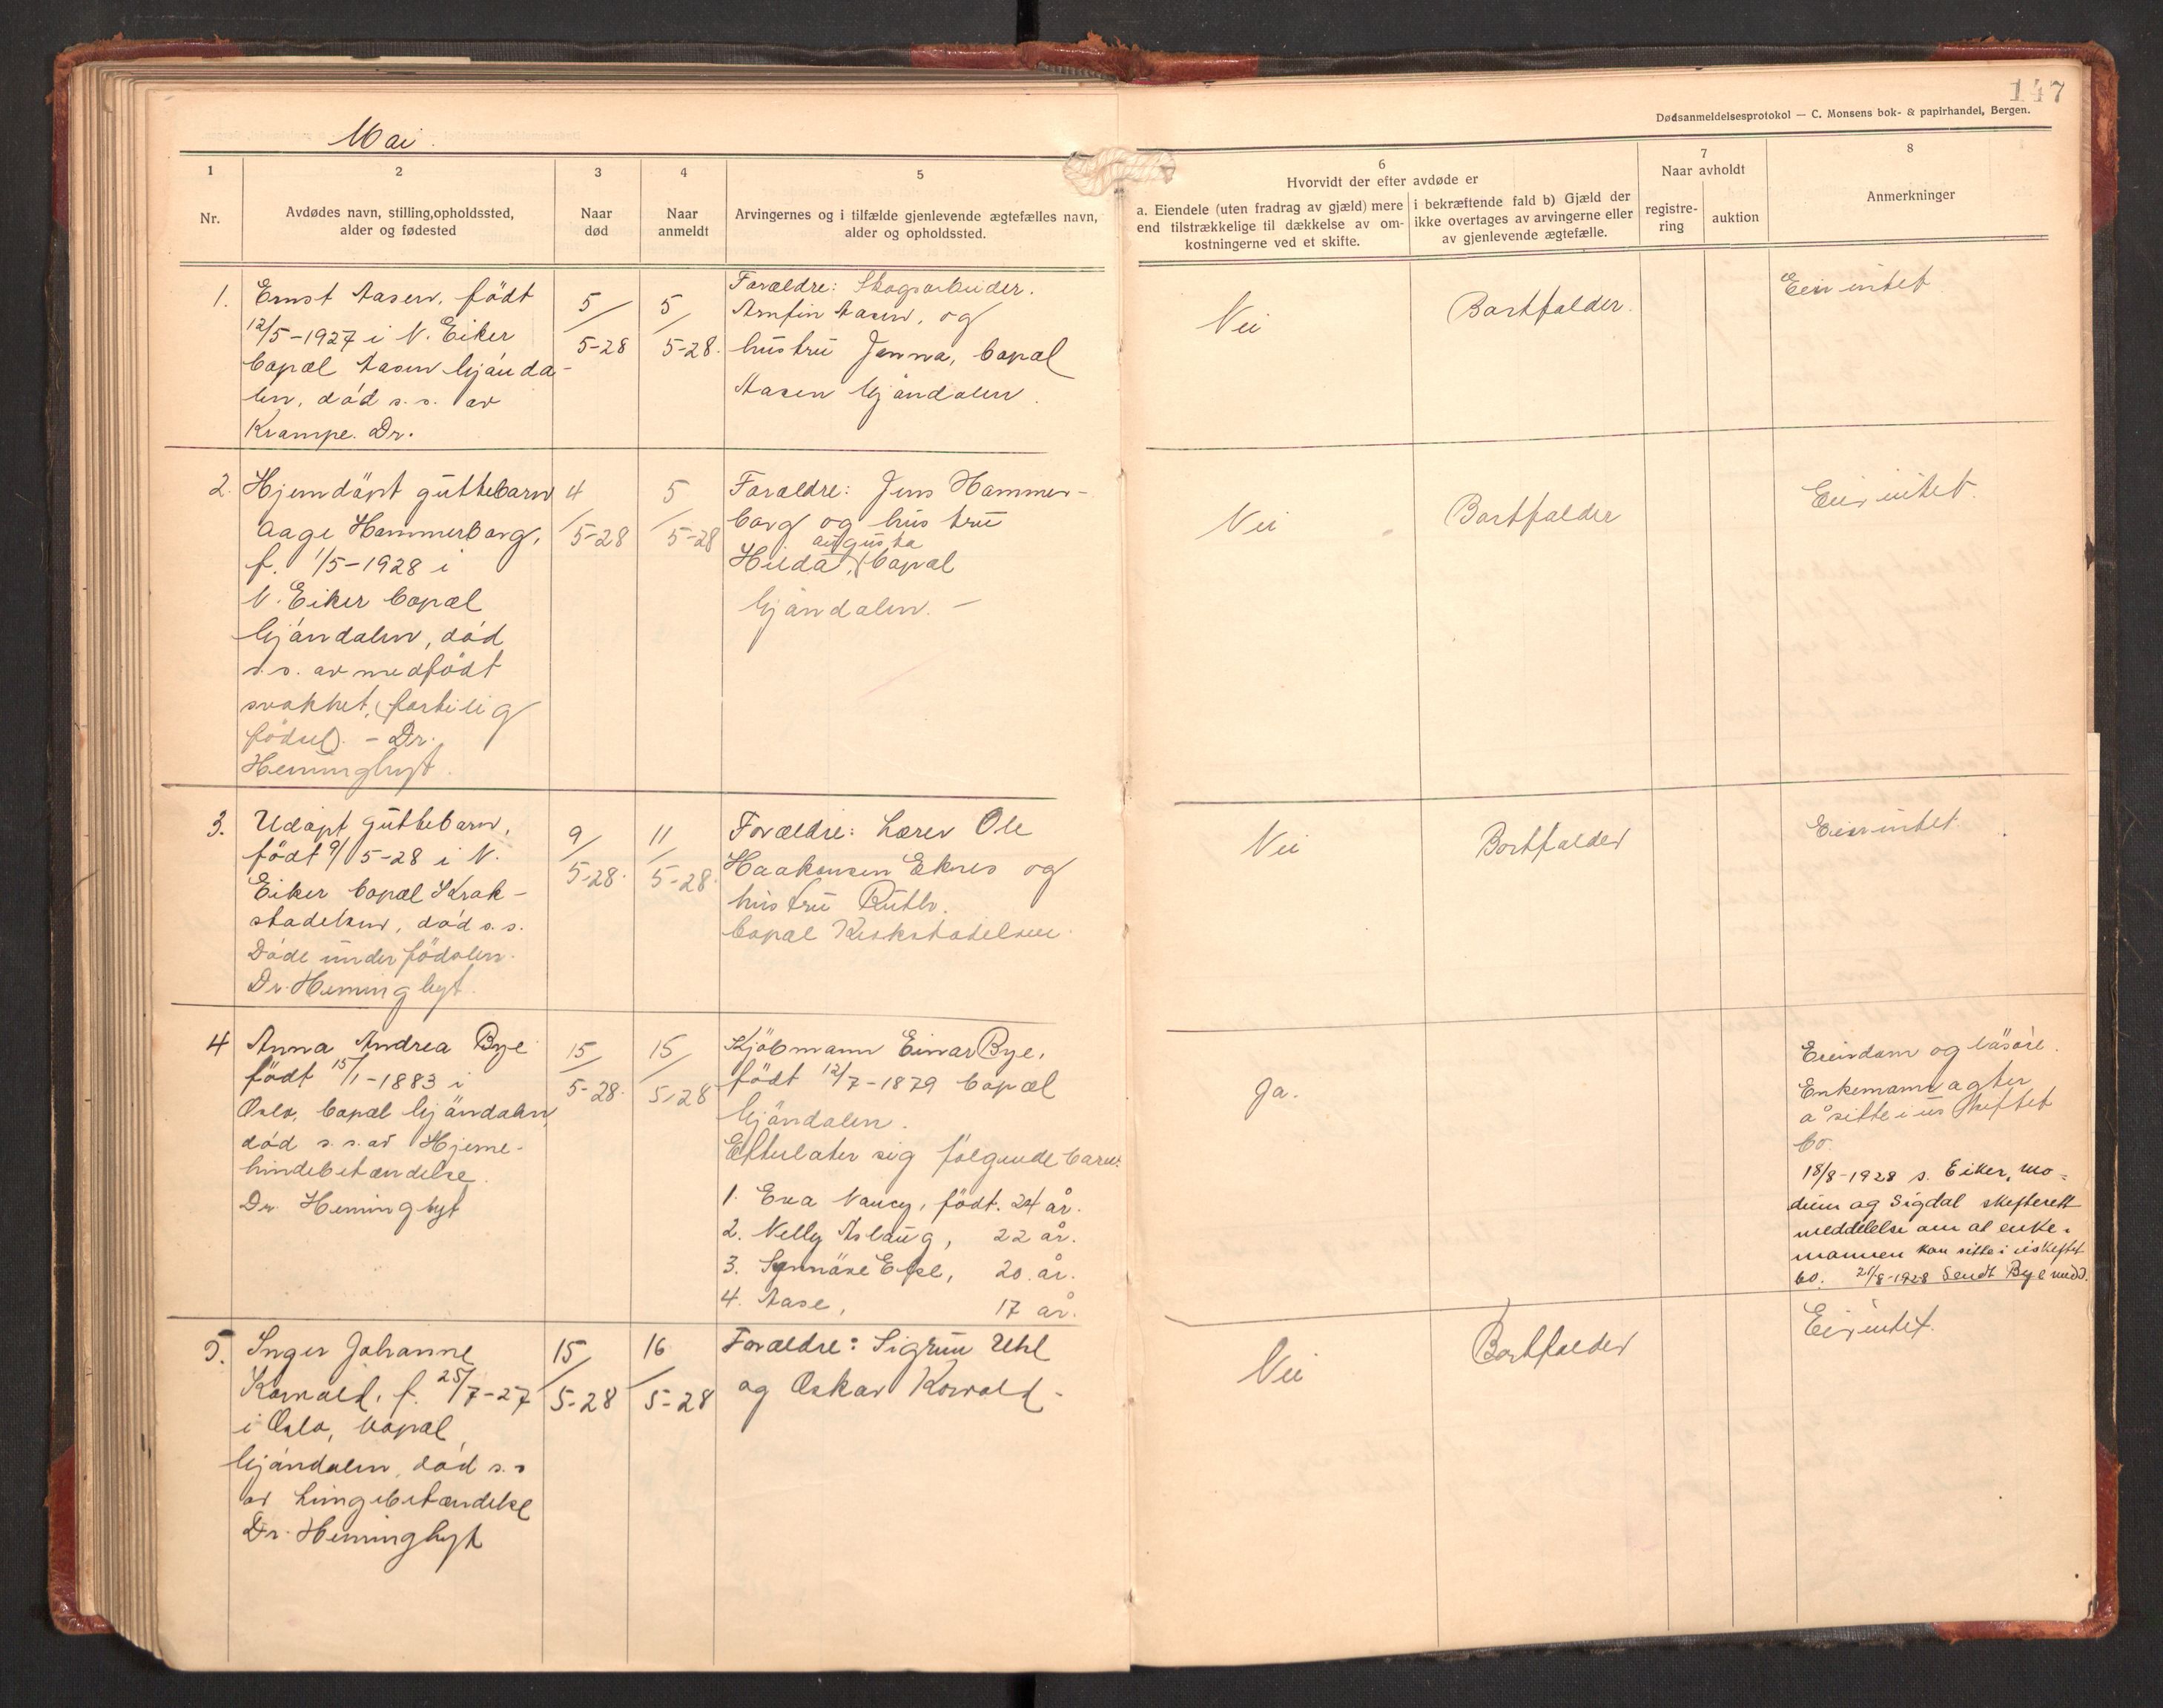 147
Dødsanmeldelsesprotokol — C. Monsens bok- & papirhandel, Bergen.
Mai.
1
Nr.
2
Avdødes navn, stilling, opholdssted,
alder og fødested
3
Naar
død
4
Naar
anmeldt
5
Arvingernes og i tilfælde gjenlevende ægtefælles navn,
alder og opholdssted.
6
Hvorvidt der efter avdøde er
a. Eiendele (uten fradrag av gjæld) mere
end tilstrækkelige til dækkelse av om-
kostningerne ved et skifte.
i bekræftende fald b) Gjæld der
ikke overtages av arvingerne eller
av gjenlevende ægtefælle.
7
Naar avholdt
registre-
ring
auktion
8
Anmerkninger
1.
Ernst Aasen, født
12/5-1927 i N. Eiker
bopæl Aasen Mjønda-
len, død s. s. av
Krampe. Dr.
5/5-28
5/5-28.
Forældre: Skogsarbeider.
Arnfin Aasen, og
hustru Jenna, bopæl
Aasen Mjøndalen.
Nei
Bortfalder.
Eier intet
2.
Hjemdøpt guttebarn
Aage Hammerborg,
f. 1/5-1928 i
N. Eiker bopæl
Mjøndalen, død
s. s. av medfødt
svakhet, (fortilig
fødsel). - Dr.
Heming hyt.
4/5-28
5/5-28
Forældre: Jens Hammer-
borg og hustru
Augusta
Hilda, bopæl
Mjøndalen. -
Nei
Bortfalder
Eier intet.
3.
Udøpt guttebarn,
født 9/5-28 i N.
Eiker bopæl Krok-
stadelven, død s. s.
Døde under fødslen.
Dr. Heming hyt.
9/5-28.
11/5-28.
Forældre: Lærer Ole
Haakonsen Eknes og
hustru Ruth.
bopæl Krokstadelven.
Nei
Bortfalder
Eier intet.
4
Anna Andrea Bye
født 15/1-1883 i
Oslo, bopæl Mjøndalen,
død s. s. av Hjerne-
hindebetændelse.
Dr. Heming hyt
15/5-28.
15/5-28
Kjøbmann Einar Bye,
født 12/7-1879 bopæl
Mjøndalen.
Efterlater sig følgende barn:
1. Eva Nancy, født. 24 år.
2. Nelly Aslaug, 22 år.
3. Synnøve Else, 20 år.
4. Aase, 17 år.
Ja.
Eiendom og løsøre.
Enkemann agter
å sitte i uskiftet
bo.
18/8-1928 s. Eiker, Mo-
dum og Sigdal skifterett
meddelelse om at enke-
mannen kan sitte i uskiftet
bo. 21/8-1928 Sendt Bye medd.
5.
Inger Johanne
Korvald, f. 25/7-27
i Oslo, bopæl
Mjøndalen, død s. s
av Lungebetændelse
Dr. Heming hyt
15/5-28
16/5-28
Forældre: Sigrun Uhl
og Oskar Korvald -
Nei
Bortfalder
Eier intet.